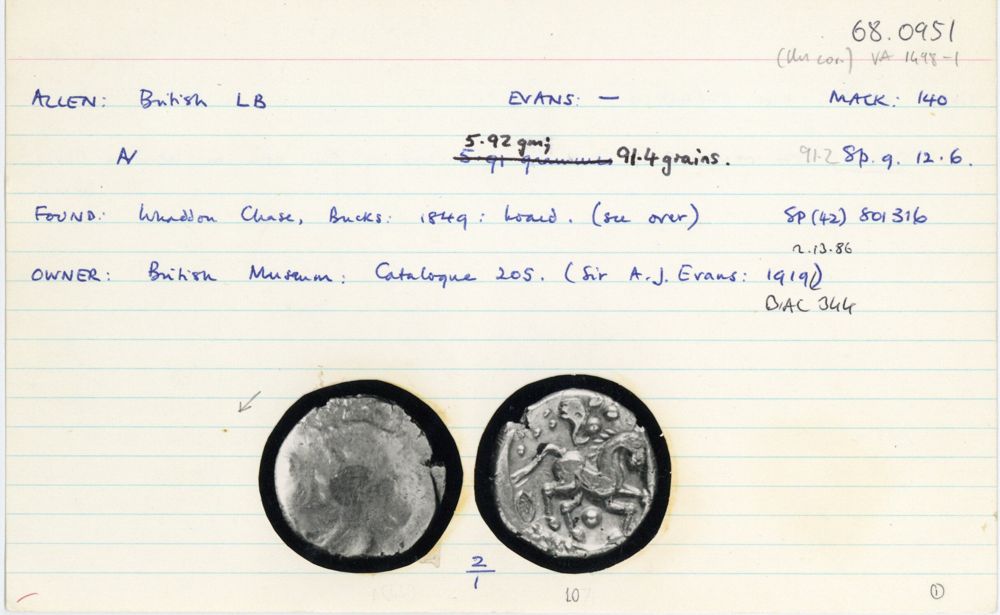 68.0951
VA 1498-1
ALLEN: British LB EVANS: — MACK: 140
5.92 gm;
AV 5.91 grammes 91.4 grains. 91.2 Sp. g. 12.6.
FOUND: Whaddon Chase, Bucks: 1849: hoard. (see over) SP (42) 801316
2.13.86
OWNER: British Museum: Catalogue 205. (Sir A.J. Evans: 1919)
BAC 344
2
1
10
1